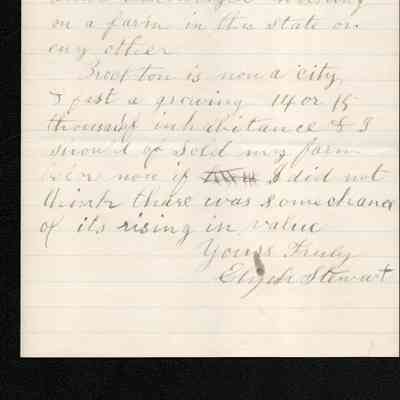 on a farm in this state or
eny other
Brockton is now a city
& fast a growing 14 or 15
thousand inhabitance & I
should of sold my farm
before now if I did not
think thare was some chance
of its rising in value
Yours Truly
Elijah Stewart